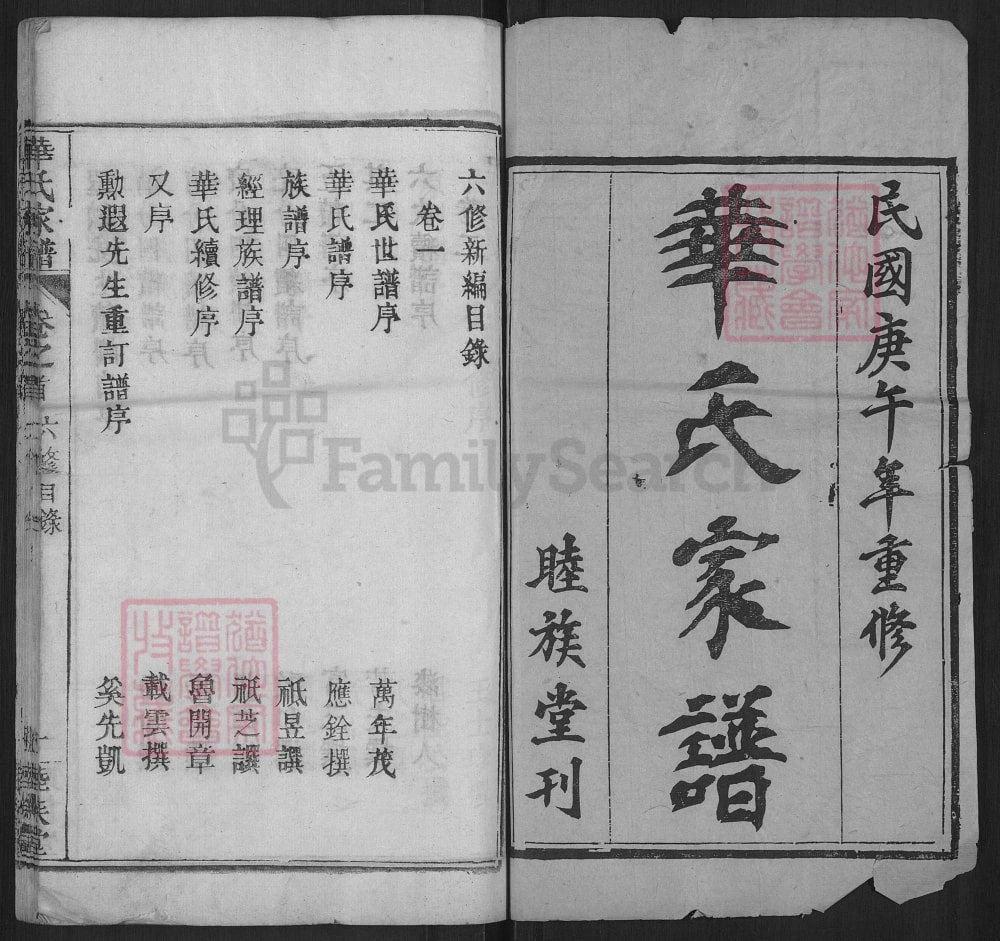 民國庚午年重修
華氏家譜
睦族堂刊
六修新編目錄
卷一
華氏世譜序 萬年茂
華氏譜序 應銓撰
族譜序 祇昱譔
經理族譜序 祇芝譔
華氏續修序 魯開章
又序 載雲撰
勲遐先生重訂譜序 奚先凱
華氏家譜 卷之首 六修目錄 一 睦族堂
FamilySearch